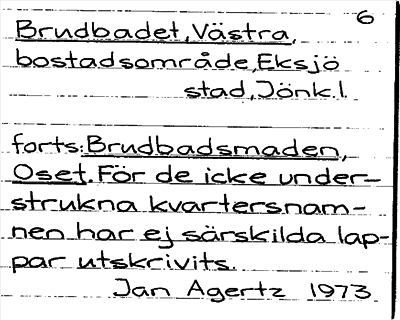 6
Brudbadet, Västra,
bostadsområde, Eksjö
stad, Jönk. l
forts: Brudbadsmaden,
Oset. För de icke under-
strukna kvartersnam-
nen har ej särskilda lap-
par utskrivits.
Jan Agertz 1973